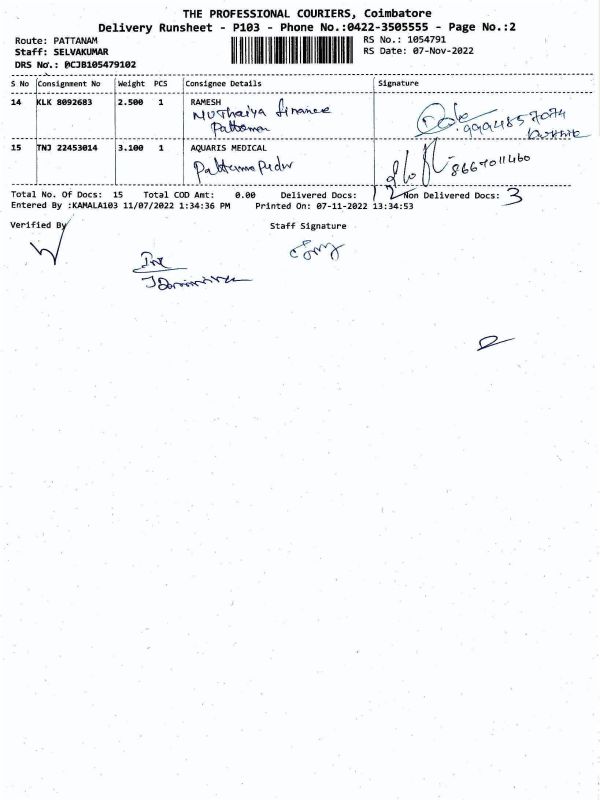 THE PROFESSIONAL COURIERS, Coimbatore
Delivery Runsheet - P103 - Phone No.:0422-3505555 - Page No.:2
Route: PATTANAM
Staff: SELVAKUMAR
DRS No.: 0CJB105479102
RS No.: 1054791
RS Date: 07-Nov-2022
S No Consignment No Weight PCS Consignee Details Signature
14 KLK 8092683 2.500 1 RAMESH
Muthaiya finance
Pattanam
9994857074
15 TNJ 22453014 3.100 1 AQUARIS MEDICAL
8667011460
Total No. Of Docs: 15 Total COD Amt: 0.00 Delivered Docs: 12 Non Delivered Docs: 3
Entered By :KAMALA103 11/07/2022 1:34:36 PM Printed On: 07-11-2022 13:34:53
Verified By Staff Signature